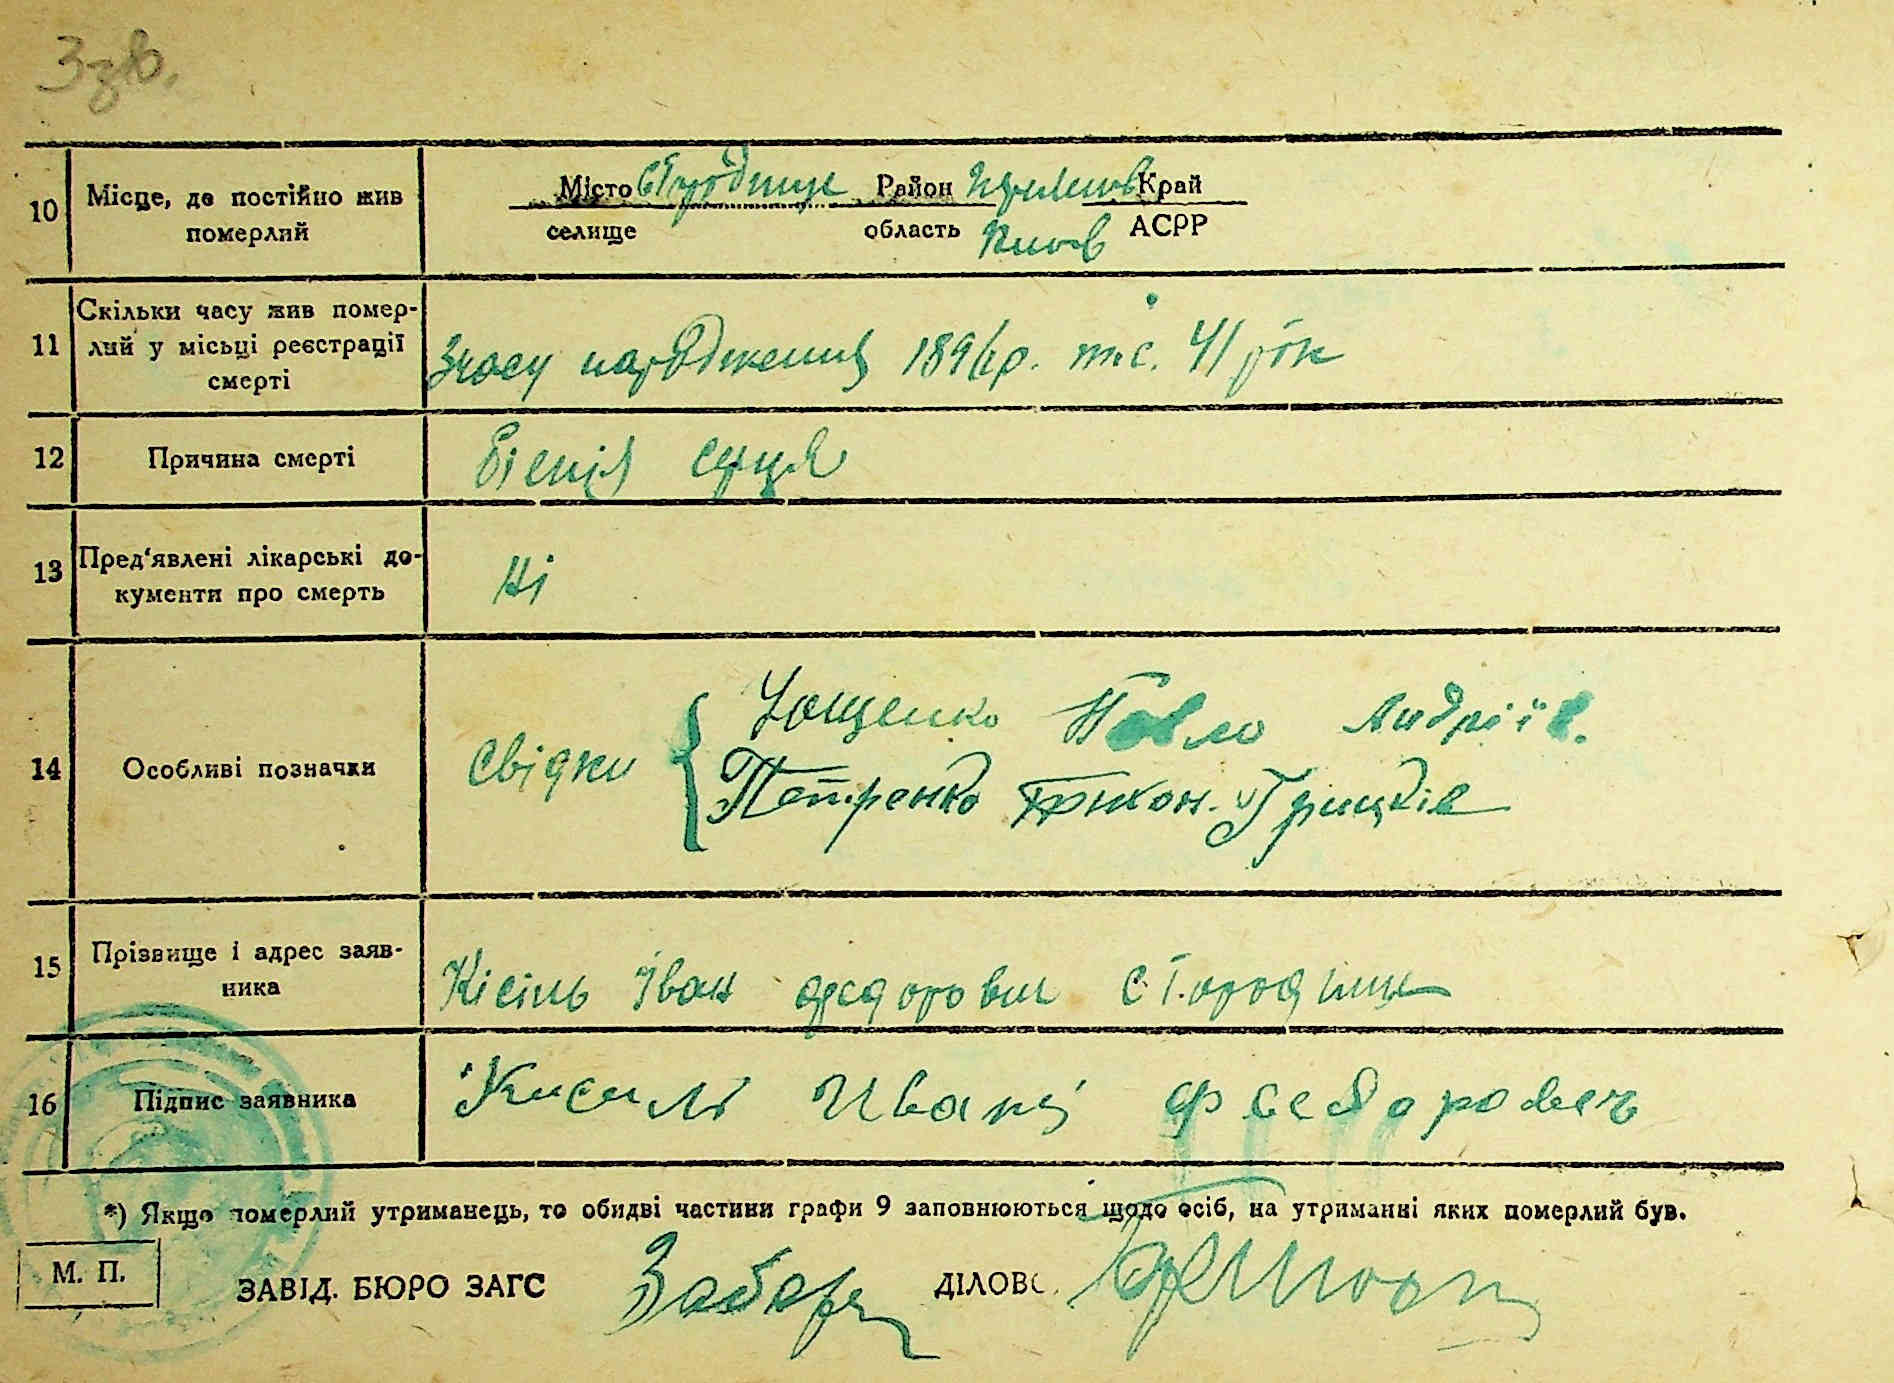 3 зв.
10 Місце, де постійно жив померлий
Місто Район Край
селище область Київ АСРР
11 Скільки часу жив помер-
лий у місьці реєстрації
смерті
Зчасу народження р. т.с. 41 рік
12 Причина смерті
серця
13 Пред'явлені лікарські до-
кументи про смерть
Ні
14 Особливі позначки
Свідки { Ющенко Павло Андріїв.
Петренко Грицьків
15 Прізвище і адрес заяв-
ника
Кісіль Іван Федорович с. Городище
16 Підпис заявника
Кисиль Иван Федорович
*) Якщо померлий утриманець, то обидві частини графи 9 заповнюються щодо осіб, на утриманні яких померлий був.
М. П.
ЗАВІД. БЮРО ЗАГС ДІЛОВ